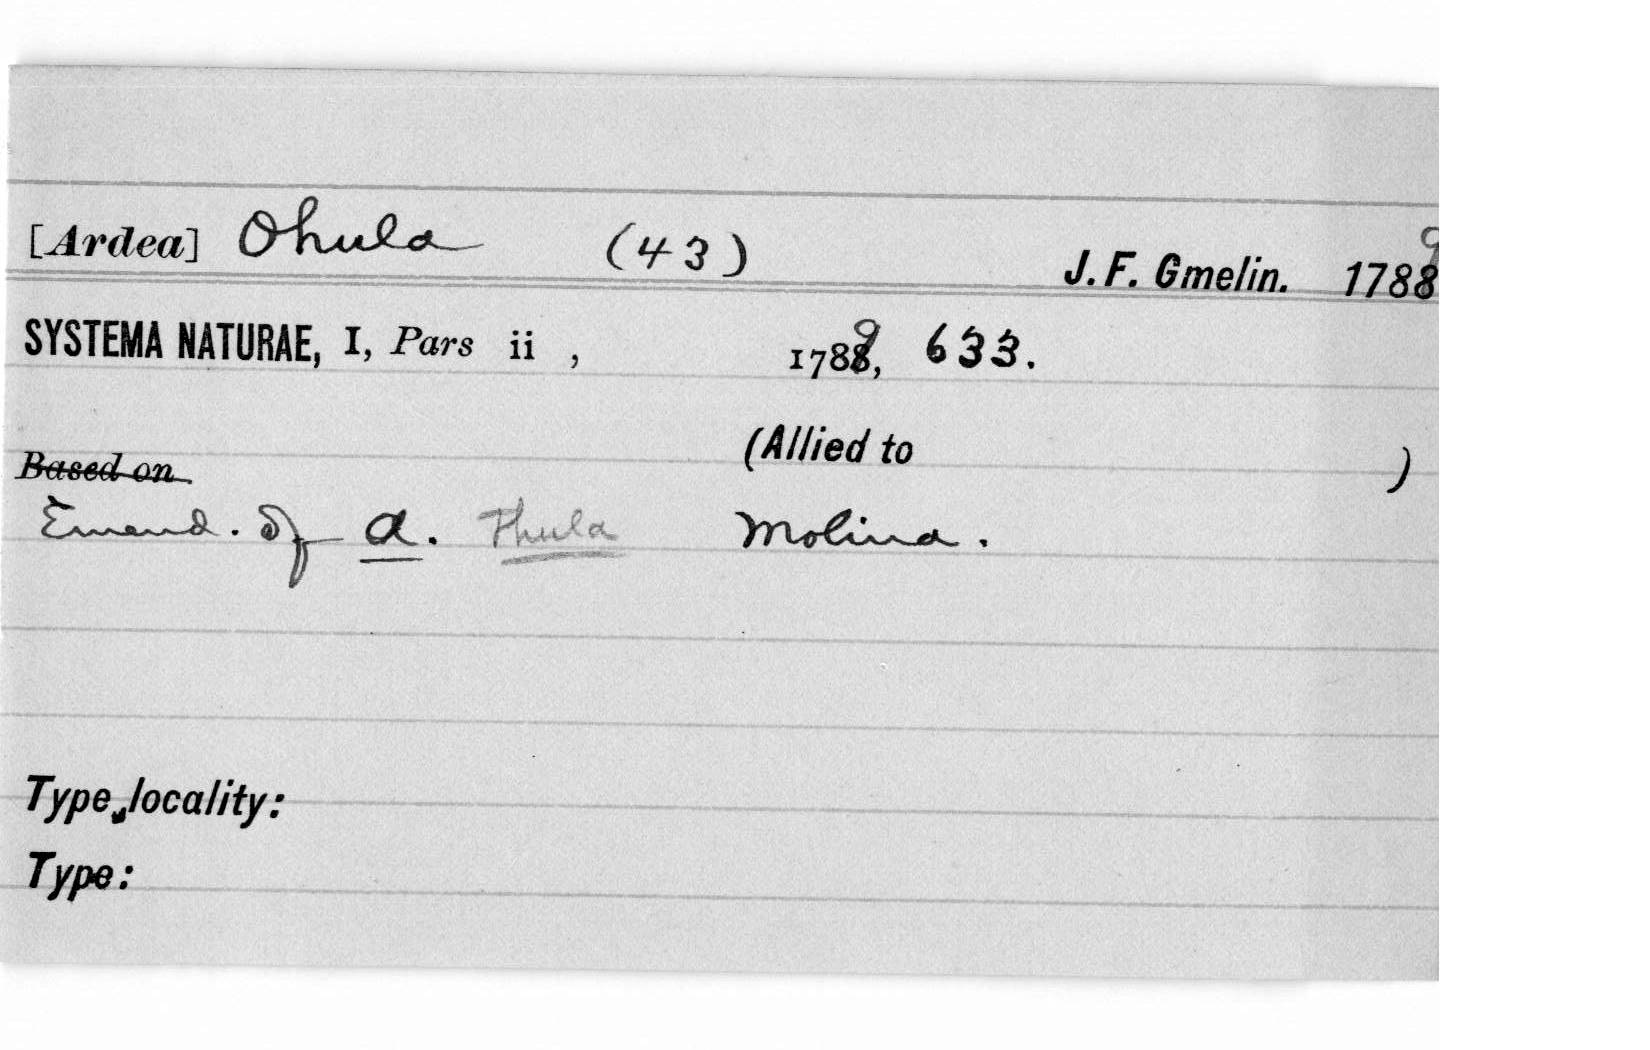 [Ardea] Ohula (43) J. F. Gmelin. 1789
SYSTEMA NATURAE, I, Pars ii , 1789, 633.
(Allied to )
Based on
Emend. of a. Thula Molina.
Type locality:
Type: